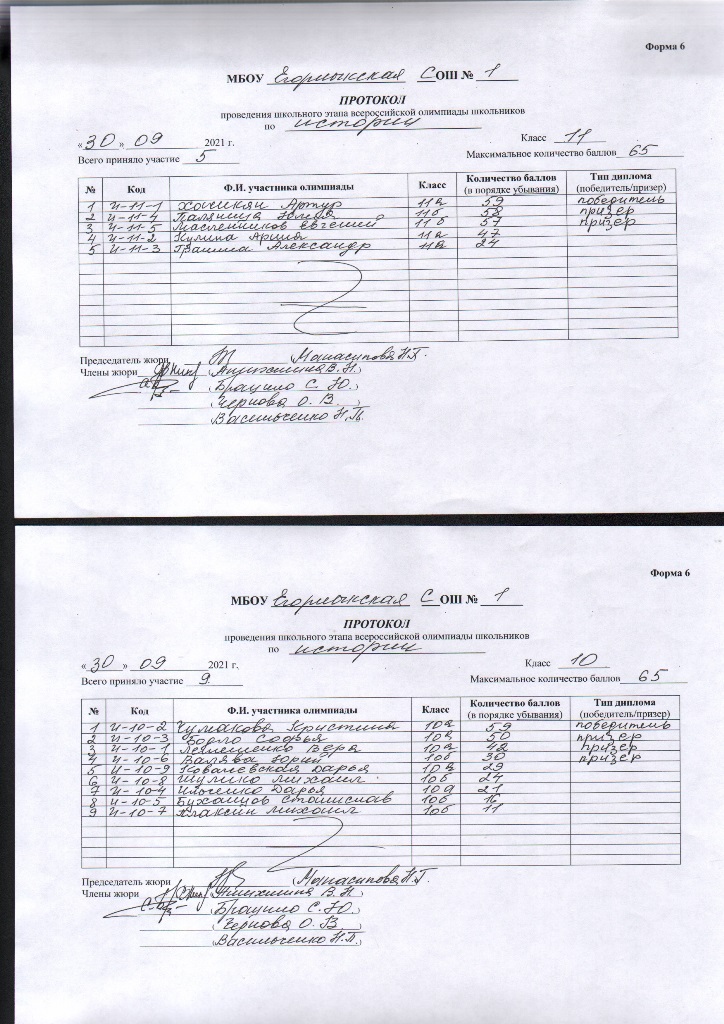 Форма 6
МБОУ Егорлыкская СОШ № 1
ПРОТОКОЛ
проведения школьного этапа всероссийской олимпиады школьников
по истории
«30» 09 2021 г. Класс 11
Всего приняло участие 5 Максимальное количество баллов 65
№ Код Ф.И. участника олимпиады Класс Количество баллов (в порядке убывания) Тип диплома (победитель/призер)
1 И-11-1 Хочикян Артур 11а 59 победитель
2 И-11-4 Паляница Юлия 11б 58 призер
3 И-11-5 Масленников Евгений 11б 57 призер
4 И-11-2 Кулина Арина 11а 47
5 И-11-3 Александр 11а 24
Председатель жюри Манасипова Н.Г.
Члены жюри Анихилина В.Н.
Брацило С.Ю.
Чернова О.В.
Васильченко Н.П.
Форма 6
МБОУ Егорлыкская СОШ № 1
ПРОТОКОЛ
проведения школьного этапа всероссийской олимпиады школьников
по истории
«30» 09 2021 г. Класс 10
Всего приняло участие 9 Максимальное количество баллов 65
№ Код Ф.И. участника олимпиады Класс Количество баллов (в порядке убывания) Тип диплома (победитель/призер)
1 И-10-2 Чумакова Кристина 10а 59 победитель
2 И-10-3 Софья 10а 50 призер
3 И-10-1 Лемешенко Вера 10а 48 призер
4 И-10-6 Валява Юрий 10б 30 призер
5 И-10-9 Ковалевская Дарья 10а 29
6 И-10-8 Шулико Михаил 10б 24
7 И-10-4 Ильченко Дарья 10а 21
8 И-10-5 Буханцов Станислав 10б 16
9 И-10-7 Михаил 10б 11
Председатель жюри Манасипова Н.Г.
Члены жюри Анихилина В.Н.
Брацило С.Ю.
Чернова О.В.
Васильченко Н.П.